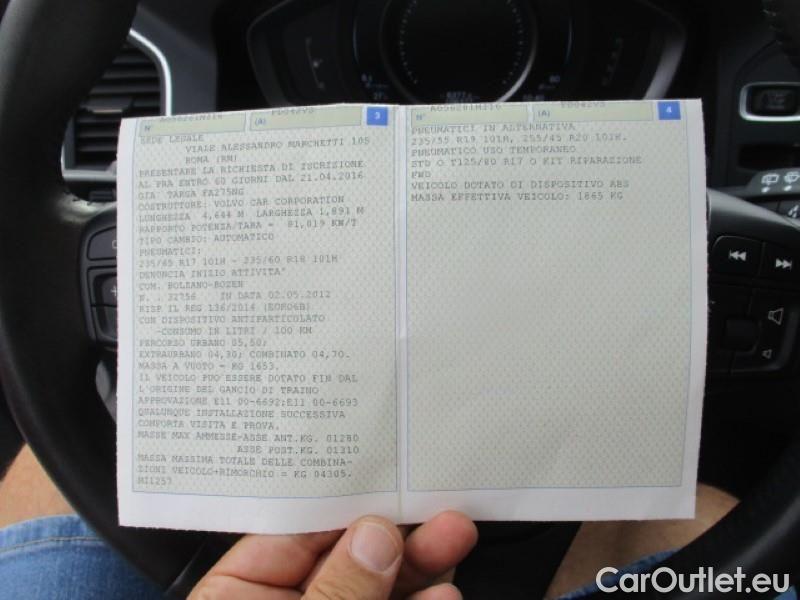 A056261M316
N°
(A)
3
SEDE LEGALE
VIALE ALESSANDRO MARCHETTI 105
ROMA (RM)
PRESENTARE LA RICHIESTA DI ISCRIZIONE
AL PRA ENTRO 60 GIORNI DAL 21.04.2016
GIA' TARGA FA275NG
COSTRUTTORE: VOLVO CAR CORPORATION
LUNGHEZZA 4,644 M LARGHEZZA 1,891 M
RAPPORTO POTENZA/TARA = 81,019 KW/T
TIPO CAMBIO: AUTOMATICO
PNEUMATICI:
235/65 R17 101H - 235/60 R18 101H
DENUNCIA INIZIO ATTIVITA'
COM. BOLZANO-BOZEN
N. : 32756 IN DATA 02.05.2012
RISP. IL REG 136/2014 (EURO6B)
CON DISPOSITIVO ANTIPARTICOLATO
-CONSUMO IN LITRI / 100 KM
PERCORSO URBANO 05,50;
EXTRAURBANO 04,30; COMBINATO 04,70.
MASSA A VUOTO = KG 1653.
IL VEICOLO PUO ESSERE DOTATO FIN DAL
L'ORIGINE DEL GANCIO DI TRAINO
APPROVAZIONE E11 00-6692;E11 00-6693
QUALUNQUE INSTALLAZIONE SUCCESSIVA
COMPORTA VISITA E PROVA.
MASSE MAX AMMESSE-ASSE ANT.KG. 01280
ASSE POST.KG. 01310
MASSA MASSIMA TOTALE DELLE COMBINA-
ZIONI VEICOLO+RIMORCHIO = KG 04305.
MI1257
A056261M316
N°
(A)
4
PNEUMATICI IN ALTERNATIVA
235/55 R19 101H, 255/45 R20 101H.
PNEUMATICO USO TEMPORANEO
STD O T125/80 R17 O KIT RIPARAZIONE
FWD
VEICOLO DOTATO DI DISPOSITIVO ABS
MASSA EFFETTIVA VEICOLO: 1865 KG
CarOutlet.eu